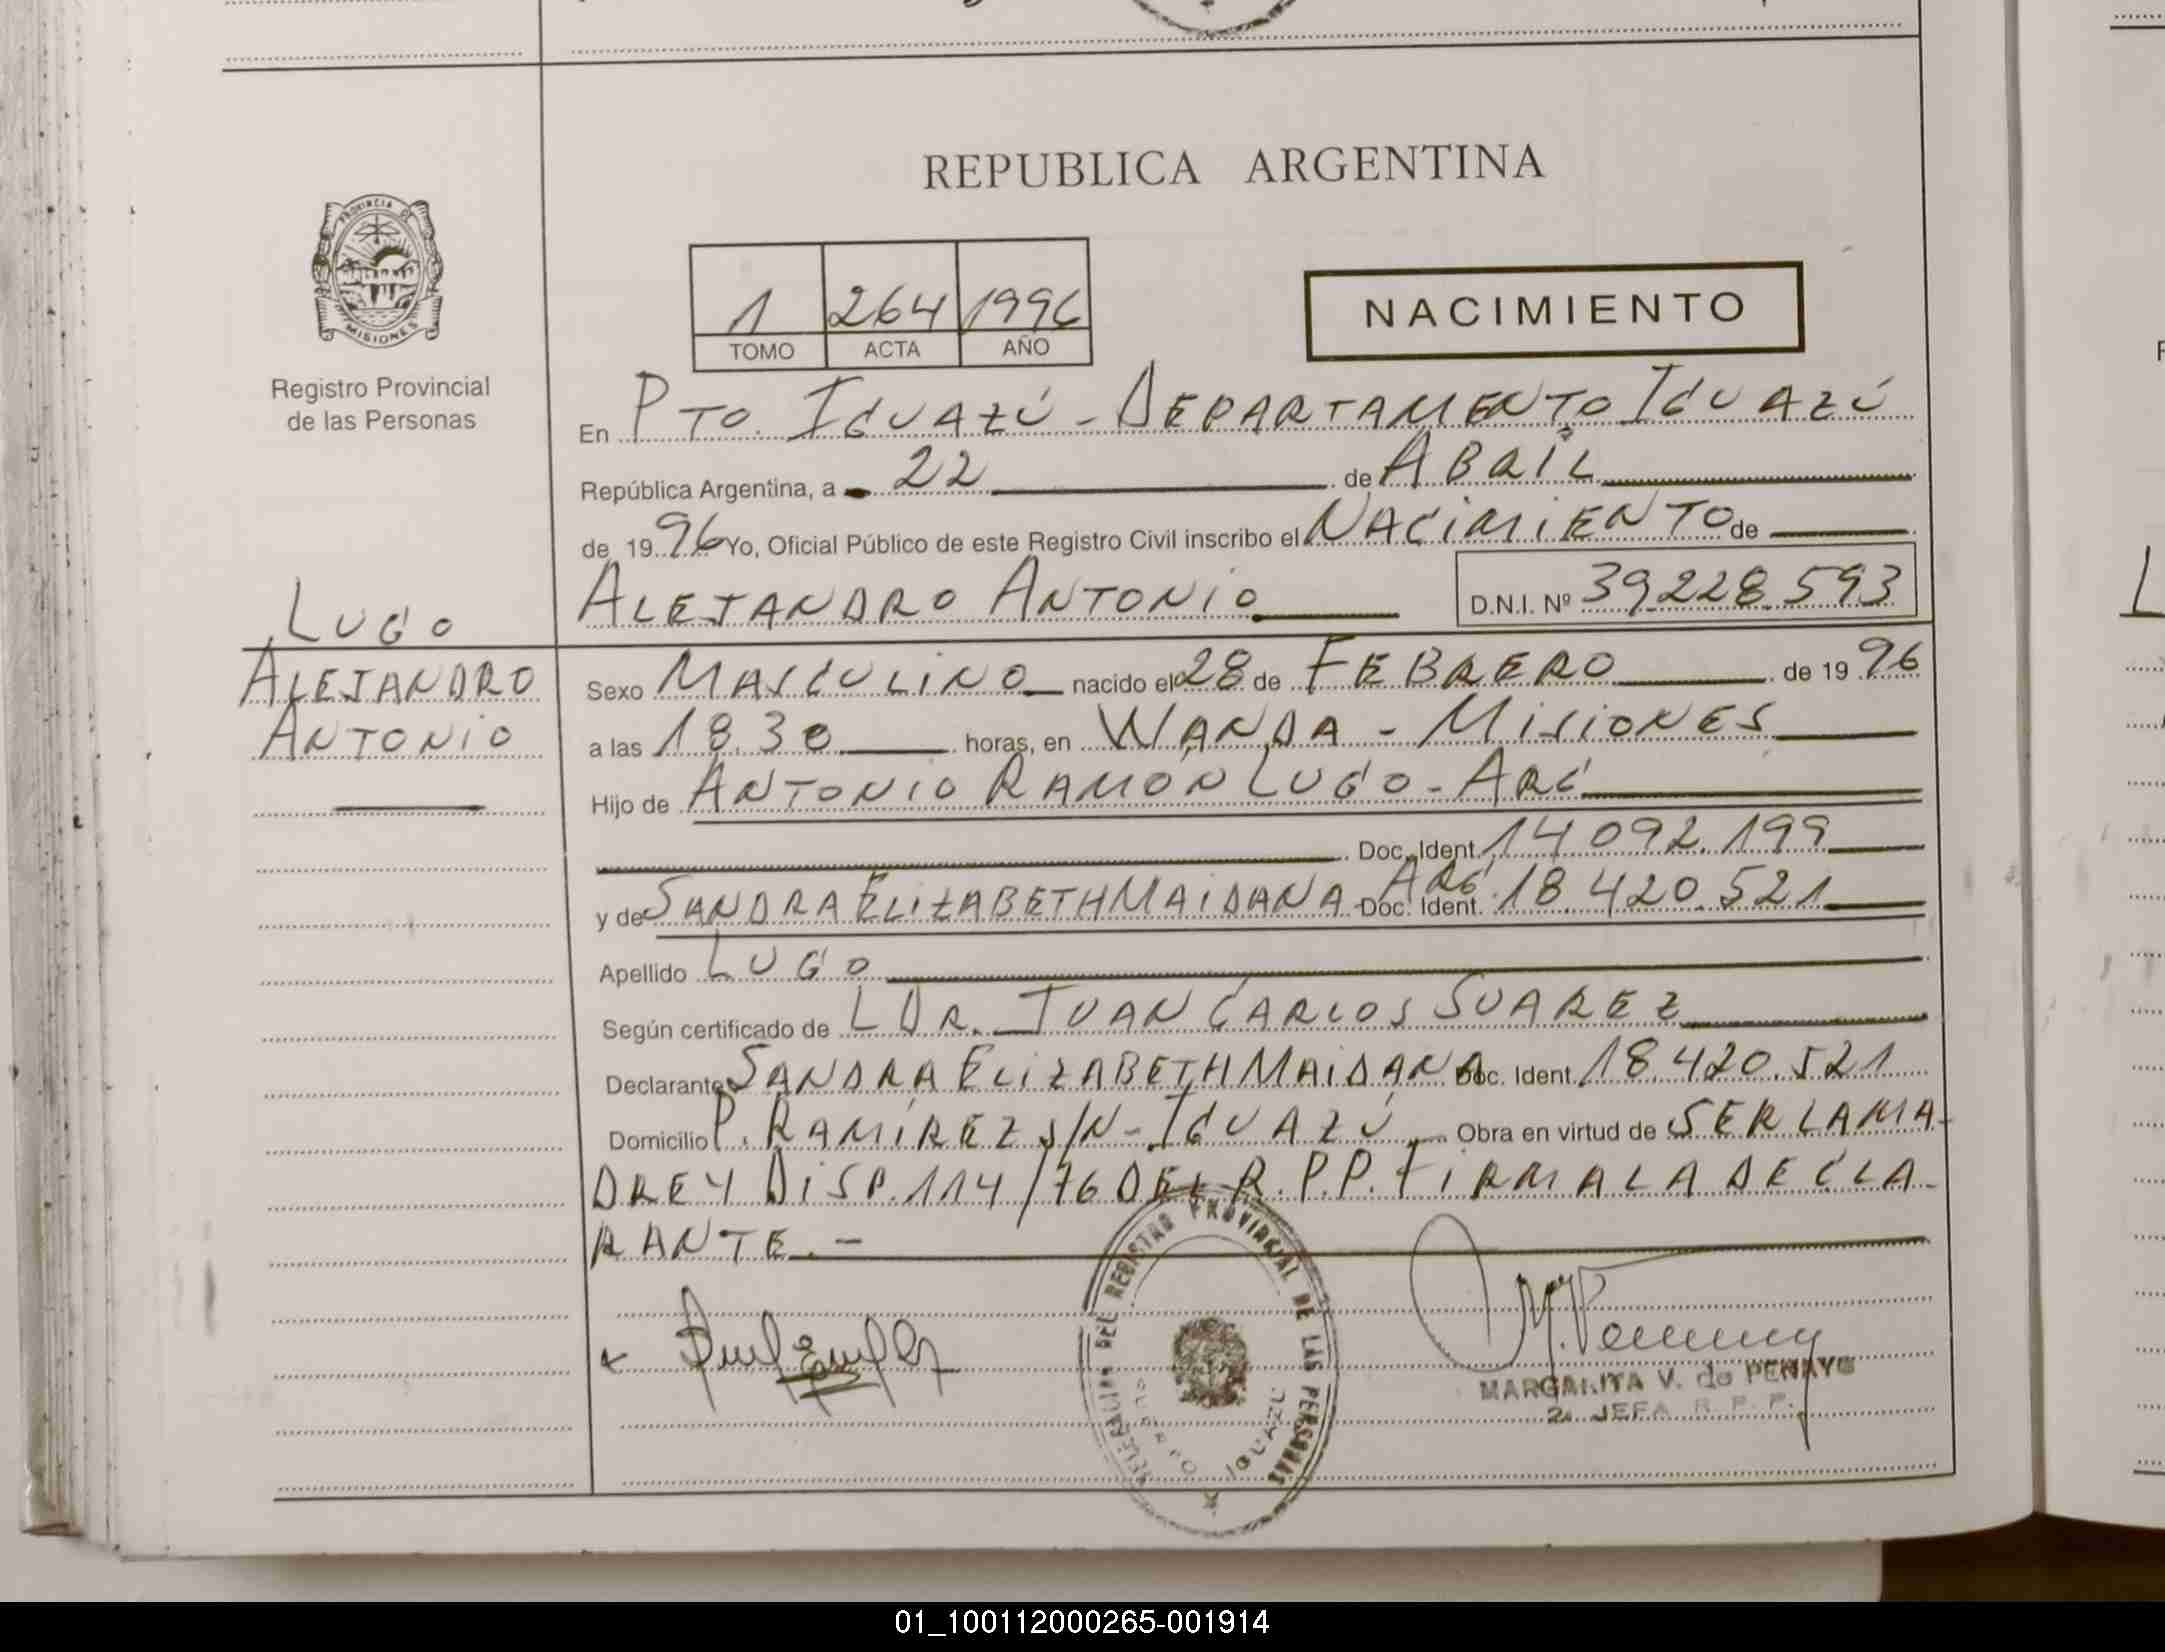 REPUBLICA ARGENTINA
PROVINCIA DE
MISIONES
Registro Provincial
de las Personas
1 264 1996
TOMO ACTA AÑO
NACIMIENTO
En PTO. IGUAZÚ - DEPARTAMENTO IGUAZÚ
República Argentina, a 22 de ABRIL
de 1996 Yo, Oficial Público de este Registro Civil inscribo el NACIMIENTO de
ALEJANDRO ANTONIO D.N.I. Nº 39.228.593
LUGO
ALEJANDRO
ANTONIO
Sexo MASCULINO nacido el 28 de FEBRERO de 1996
a las 18.30 horas, en WANDA - MISIONES
Hijo de ANTONIO RAMÓN LUGO - ARG
Doc. Ident. 14.092.199
y de SANDRA ELIZABETH MAIDANA - ARG. Doc. Ident. 18.420.521
Apellido LUGO
Según certificado de L DR. JUAN CARLOS SUAREZ
Declarante SANDRA ELIZABETH MAIDANA Doc. Ident. 18.420.521
Domicilio P. RAMÍREZ S/N - IGUAZÚ Obra en virtud de SER LA MA-
DRE Y DISP. 114/76 DEL R.P.P. FIRMA LA DECLA-
RANTE.-
DELEGACION DEL REGISTRO PROVINCIAL DE LAS PERSONAS
PUERTO IGUAZU
MARGARITA V. de PENAYO
2a JEFA R. P. P.
01_100112000265-001914